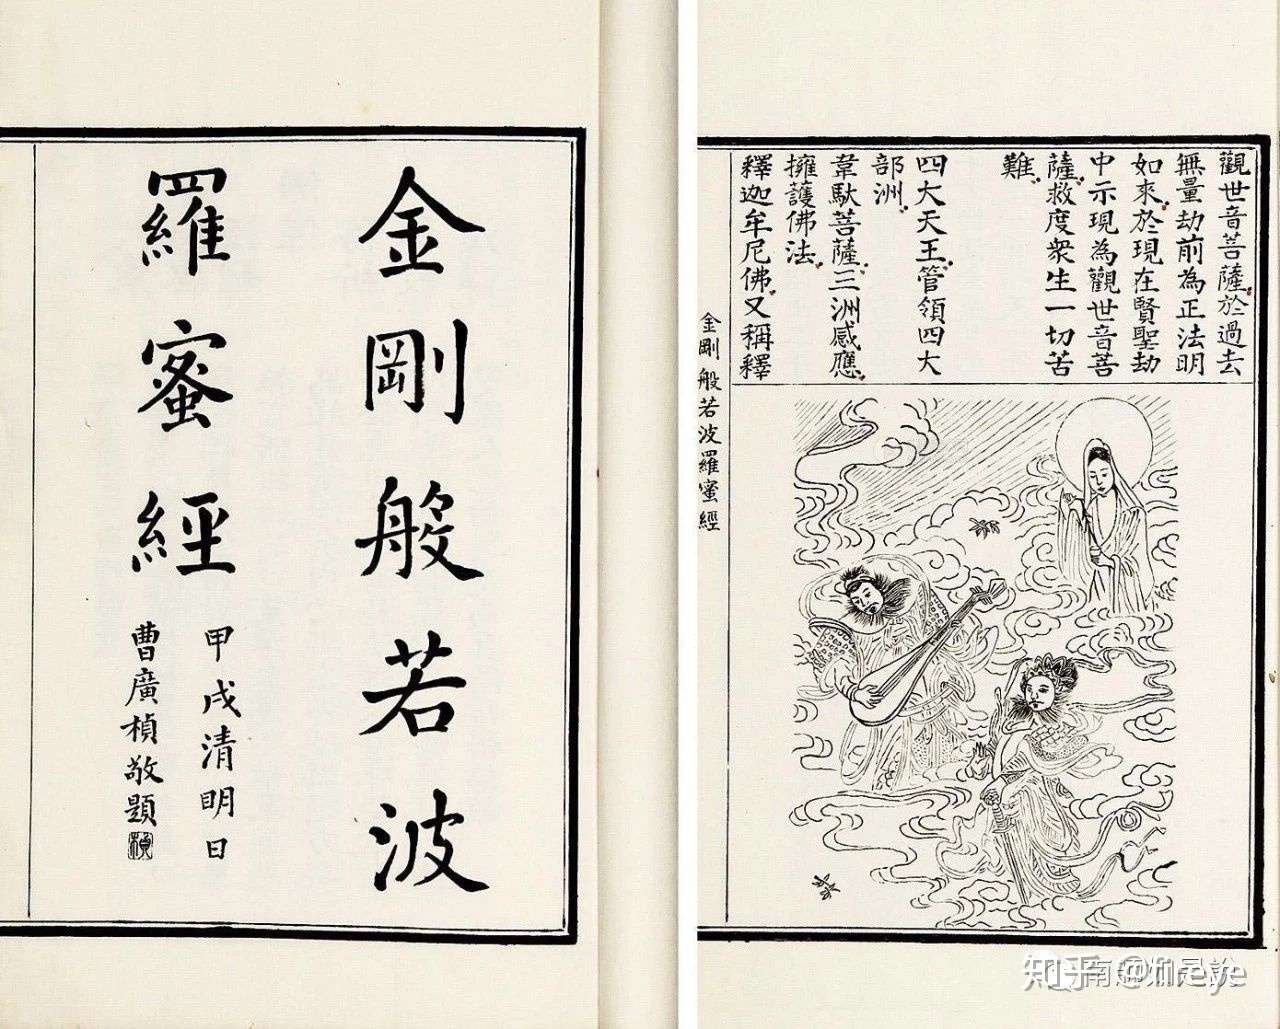 金剛般若波
羅蜜經
甲戌清明日
曹廣楨敬題
觀世音菩薩於過去
無量劫前為正法明
如來於現在賢聖劫
中示現為觀世音菩
薩救度衆生一切苦
難
四大天王管領四大
部洲
韋馱菩薩三洲感應
擁護佛法
釋迦牟尼佛又稱釋
金剛般若波羅蜜經
知乎 @fireye